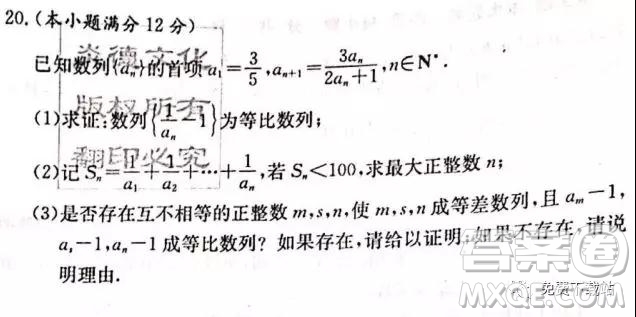 20.(本小题满分 12 分)
炎德文化
已知数列{aₙ}的首项 a₁=3/5,aₙ₊₁=3aₙ/(2aₙ+1),n∈N*.
版权所有
(1)求证:数列{1/aₙ-1}为等比数列;
翻印必究
(2)记 Sₙ=1/a₁+1/a₂+…+1/aₙ,若 Sₙ<100,求最大正整数 n;
(3)是否存在互不相等的正整数 m,s,n,使 m,s,n 成等差数列,且 aₘ-1,
aₛ-1,aₙ-1 成等比数列?如果存在,请给以证明;如果不存在,请说
明理由.
答案圈
MXQE.COM
免费下载站